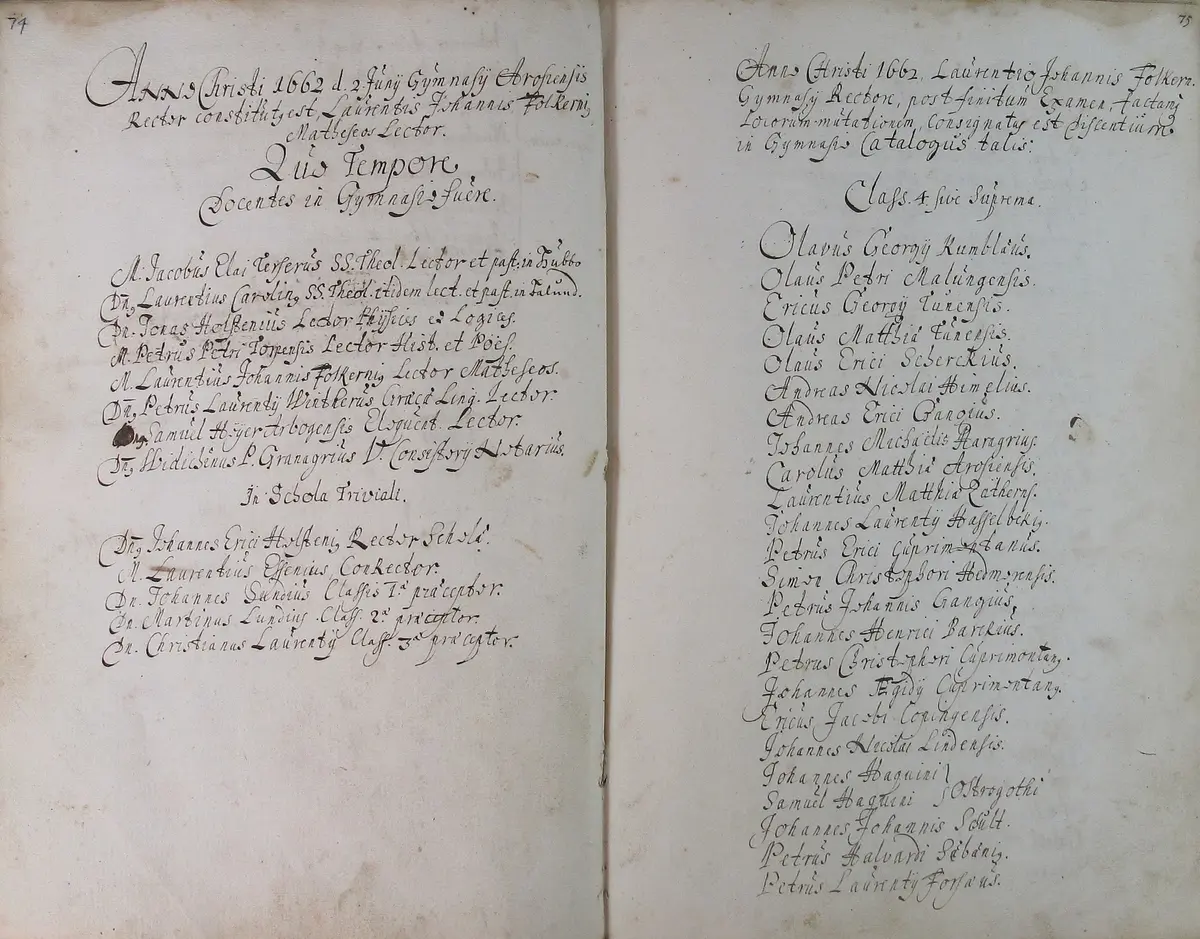 74
Anno Christi 1662 d. 2. Junÿ Gymnasÿ Arosiensis
Rector constitutg est, Laurentis Johannis Folkernig
Matheseos Lector.
Quo Tempore
Docentes in Gymnasio fuêre.
M. Jacobus Elai Terserus SS. Theol. Lector et past: in Hubbo
Dng Laurentius Caroling SS. Theol. itidem lect. et past. in
Dn. Jonas Holstenius Lector Physices et Logices.
M. Petrus Petri Torpensis Lector Hist. et Poës.
M. Laurentius Johannis Folkernig Lector Matheseos.
Dng Petrus Laurentÿ Wintherus Græcæ Ling. Lector.
Dng Samuel Höyer Arbogensis Eloquent. Lector.
Dng Widichinus P. Granagrius V. Consistorÿ Notarius.
In Schola Triviali.
Dng Johannes Erici Holstenig Rector Scholæ.
M. Laurentius Essenius, ConRector.
Dn. Johannes Sundius Classis 1.ª præceptor.
Dn. Martinus Lundius. Class. 2.ª præceptor.
Dn. Christianus Laurentÿ Class. 3ª præceptor.
75
Anno Christi 1662. Laurentio Johannis Folkern.
Gymnasÿ Rectore, post finitum Examen, factamg
Locorum mutationem, Consignatus est discentium
in Gymnasio Catalogus talis:
Class. 4. sive Suprema.
Olavus Georgÿ Rumblæus.
Olaus Petri Malungensis.
Ericus Georgÿ Tunensis.
Olaus Matthiæ Tunensis.
Olaus Erici Scherckius.
Andreas Nicolai Himelius.
Andreas Erici Gangius.
Johannes Michaëlis
Carolus Matthiæ Arosiensis.
Laurentius Matthiæ
Johannes Laurentÿ Hasselbekig.
Petrus Erici Cuprimontanus.
Simon Christophori Hedmorensis.
Petrus Johannis Gangius.
Johannes Henrici Barckius.
Petrus Christopheri Cuprimontang.
Johannes Ægidÿ Cuprimontang.
Ericus Jacobi Copingensis.
Johannes Nicolai Lindensis.
Johannes Haquini
Samuel Haquini } Ostrogothi
Johannes Johannis Scult.
Petrus Halvardi
Petrus Laurentÿ Forsæus.